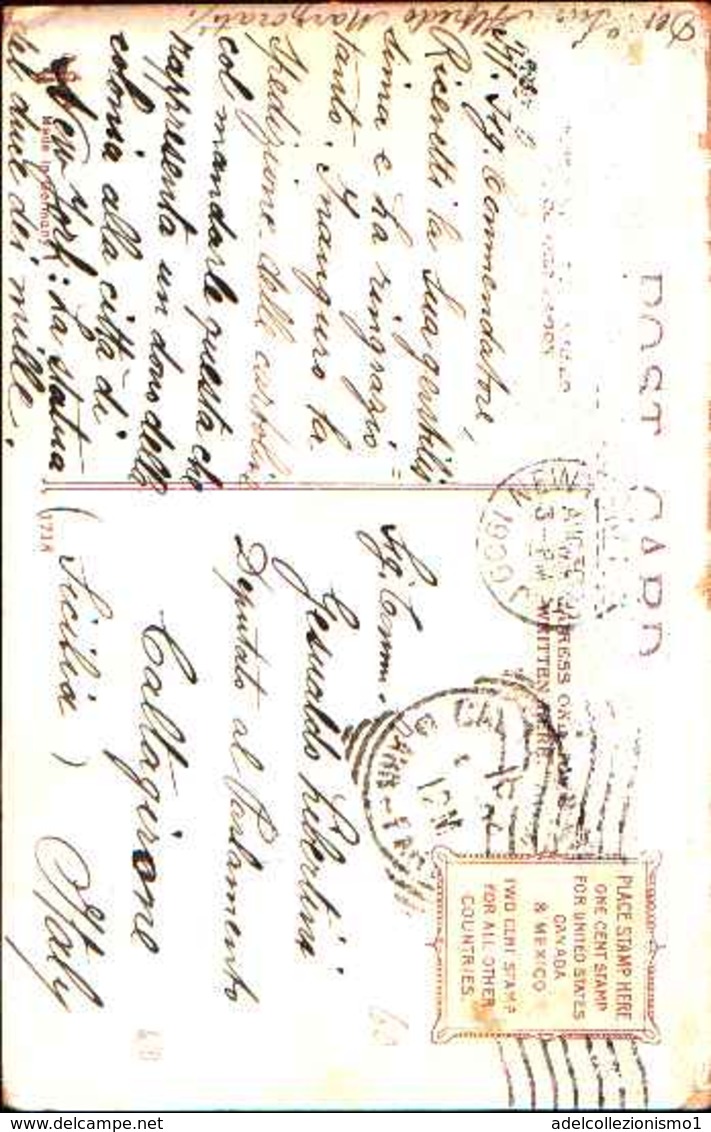 POST CARD
Alfredo Marzorati
Ill. Sig. Commendatore,
Ricevetti la Sua gentilis=
sima e La ringrazio
tanto. Inauguro la
spedizione delle cartoline
col mandarle questa che
rappresenta un dono della
colonia alla città di
New York: La statua
del duce dei mille.
Made in Germany
NEW
3-PM
1909
ADDRESS ONLY
WRITTEN HERE
CAL
PLACE STAMP HERE
ONE CENT STAMP
FOR UNITED STATES
CANADA
& MEXICO
TWO CENT STAMP
FOR ALL OTHER
COUNTRIES
Sig. Comm.
Gesualdo Libertini
Deputato al Parlamento
Caltagirone
(Sicilia) Italy
adelcollezionismo1